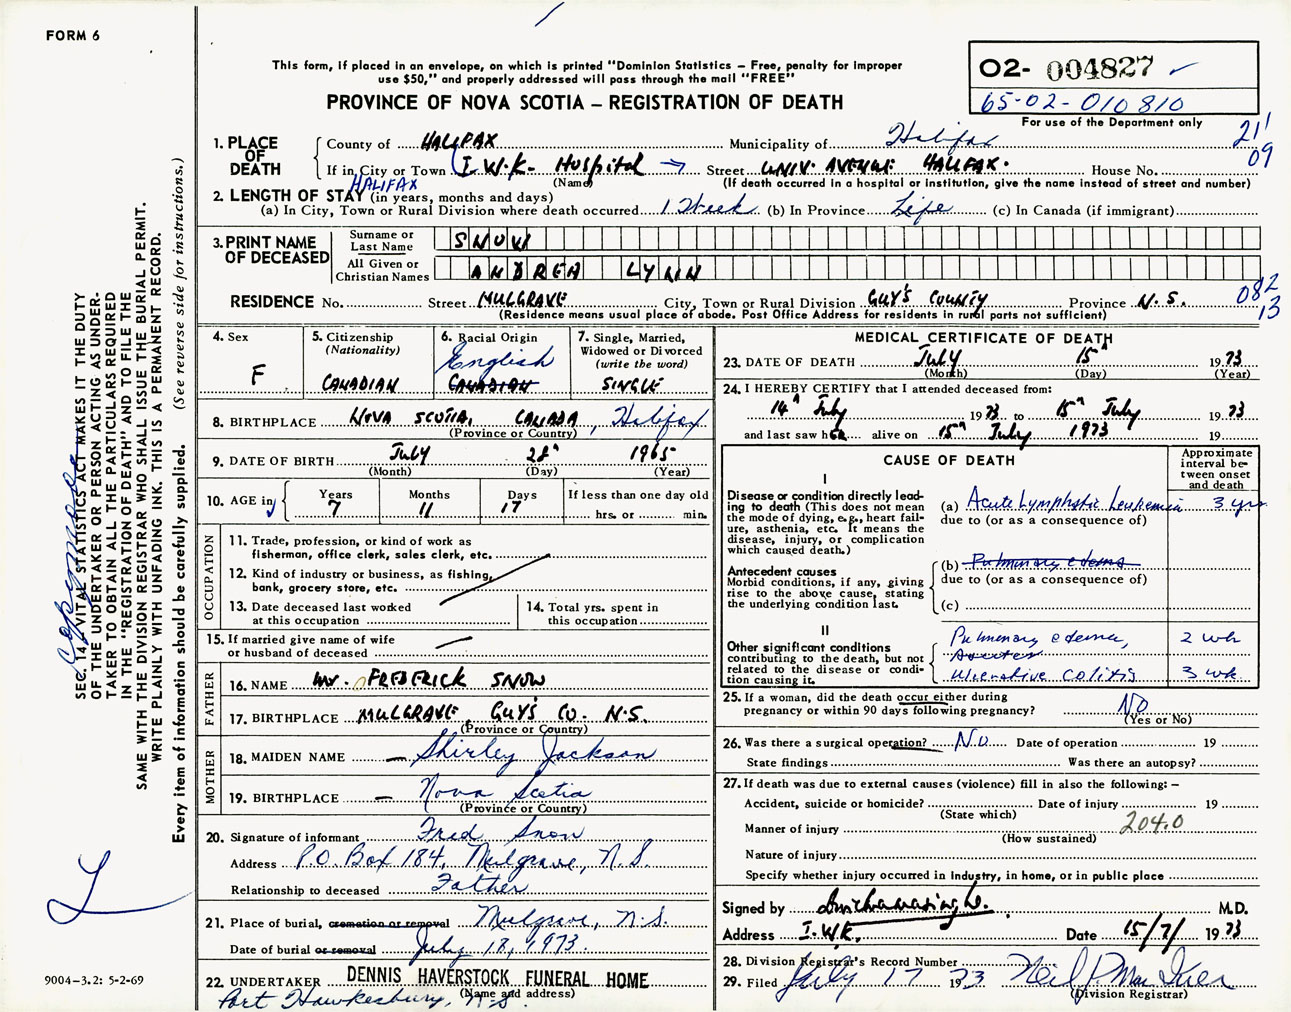 FORM 6
This form, if placed in an envelope, on which is printed "Dominion Statistics – Free, penalty for improper
use $50," and properly addressed will pass through the mail "FREE"
PROVINCE OF NOVA SCOTIA – REGISTRATION OF DEATH
O2- 004827
65-02-010810
For use of the Department only
211
09
1. PLACE OF DEATH
County of HALIFAX Municipality of Halifax
If in City or Town I.W.K. Hospital Street UNIV. AVENUE HALIFAX. House No.
(Name) (If death occurred in a hospital or institution, give the name instead of street and number)
HALIFAX
2. LENGTH OF STAY (in years, months and days)
(a) In City, Town or Rural Division where death occurred 1 Week (b) In Province Life (c) In Canada (if immigrant)
3. PRINT NAME OF DECEASED
Surname or Last Name SNOW
All Given or Christian Names ANDREA LYNN
RESIDENCE No. Street MULGRAVE City, Town or Rural Division GUY'S COUNTY Province N.S.
082
13
(Residence means usual place of abode. Post Office Address for residents in rural parts not sufficient)
4. Sex F
5. Citizenship (Nationality) CANADIAN
6. Racial Origin English CANADIAN
7. Single, Married, Widowed or Divorced (write the word) SINGLE
8. BIRTHPLACE NOVA SCOTIA, CANADA, Halifax
(Province or Country)
9. DATE OF BIRTH July 28th 1965
(Month) (Day) (Year)
10. AGE in Years 7 Months 11 Days 17 If less than one day old
hrs. or min.
OCCUPATION
11. Trade, profession, or kind of work as
fisherman, office clerk, sales clerk, etc.
12. Kind of industry or business, as fishing,
bank, grocery store, etc.
13. Date deceased last worked
at this occupation
14. Total yrs. spent in
this occupation
15. If married give name of wife
or husband of deceased
FATHER
16. NAME Mr. FREDERICK SNOW
17. BIRTHPLACE MULGRAVE, GUY'S CO. N.S.
(Province or Country)
MOTHER
18. MAIDEN NAME Shirley Jackson
19. BIRTHPLACE Nova Scotia
(Province or Country)
20. Signature of informant Fred Snow
Address P.O. Box 184, Mulgrave, N.S.
Relationship to deceased Father
21. Place of burial, cremation or removal Mulgrave, N.S.
Date of burial or removal July 18, 1973.
22. UNDERTAKER DENNIS HAVERSTOCK FUNERAL HOME
(Name and address)
Port Hawkesbury, N.S.
MEDICAL CERTIFICATE OF DEATH
23. DATE OF DEATH July 15th 1973
(Month) (Day) (Year)
24. I HEREBY CERTIFY that I attended deceased from:
14th July 1973 to 15th July 1973
and last saw her alive on 15th July 1973 19
CAUSE OF DEATH
Approximate interval between onset and death
I
Disease or condition directly leading to death (This does not mean the mode of dying, e.g., heart failure, asthenia, etc. It means the disease, injury, or complication which caused death.)
(a) Acute Lymphatic Leukemia 3 yrs
due to (or as a consequence of)
Antecedent causes
Morbid conditions, if any, giving rise to the above cause, stating the underlying condition last.
(b) Pulmonary edema
due to (or as a consequence of)
(c)
II
Other significant conditions contributing to the death, but not related to the disease or condition causing it.
Pulmonary edema, 2 wk
Ulcerative colitis 3 wk
25. If a woman, did the death occur either during
pregnancy or within 90 days following pregnancy? NO
(Yes or No)
26. Was there a surgical operation? No Date of operation 19
State findings Was there an autopsy?
27. If death was due to external causes (violence) fill in also the following: –
Accident, suicide or homicide? Date of injury 19
(State which)
Manner of injury 204.0
(How sustained)
Nature of injury
Specify whether injury occurred in industry, in home, or in public place
Signed by M.D.
Address I.W.K. Date 15/7/ 1973
28. Division Registrar's Record Number
29. Filed July 17 1973 Neil P. Mac
(Division Registrar)
SEC. 14, VITAL STATISTICS ACT MAKES IT THE DUTY
OF THE UNDERTAKER OR PERSON ACTING AS UNDER-
TAKER TO OBTAIN ALL THE PARTICULARS REQUIRED
IN THE "REGISTRATION OF DEATH" AND TO FILE THE
SAME WITH THE DIVISION REGISTRAR WHO SHALL ISSUE THE BURIAL PERMIT.
WRITE PLAINLY WITH UNFADING INK. THIS IS A PERMANENT RECORD.
Every item of information should be carefully supplied. (See reverse side for instructions.)
9004–3.2: 5-2-69